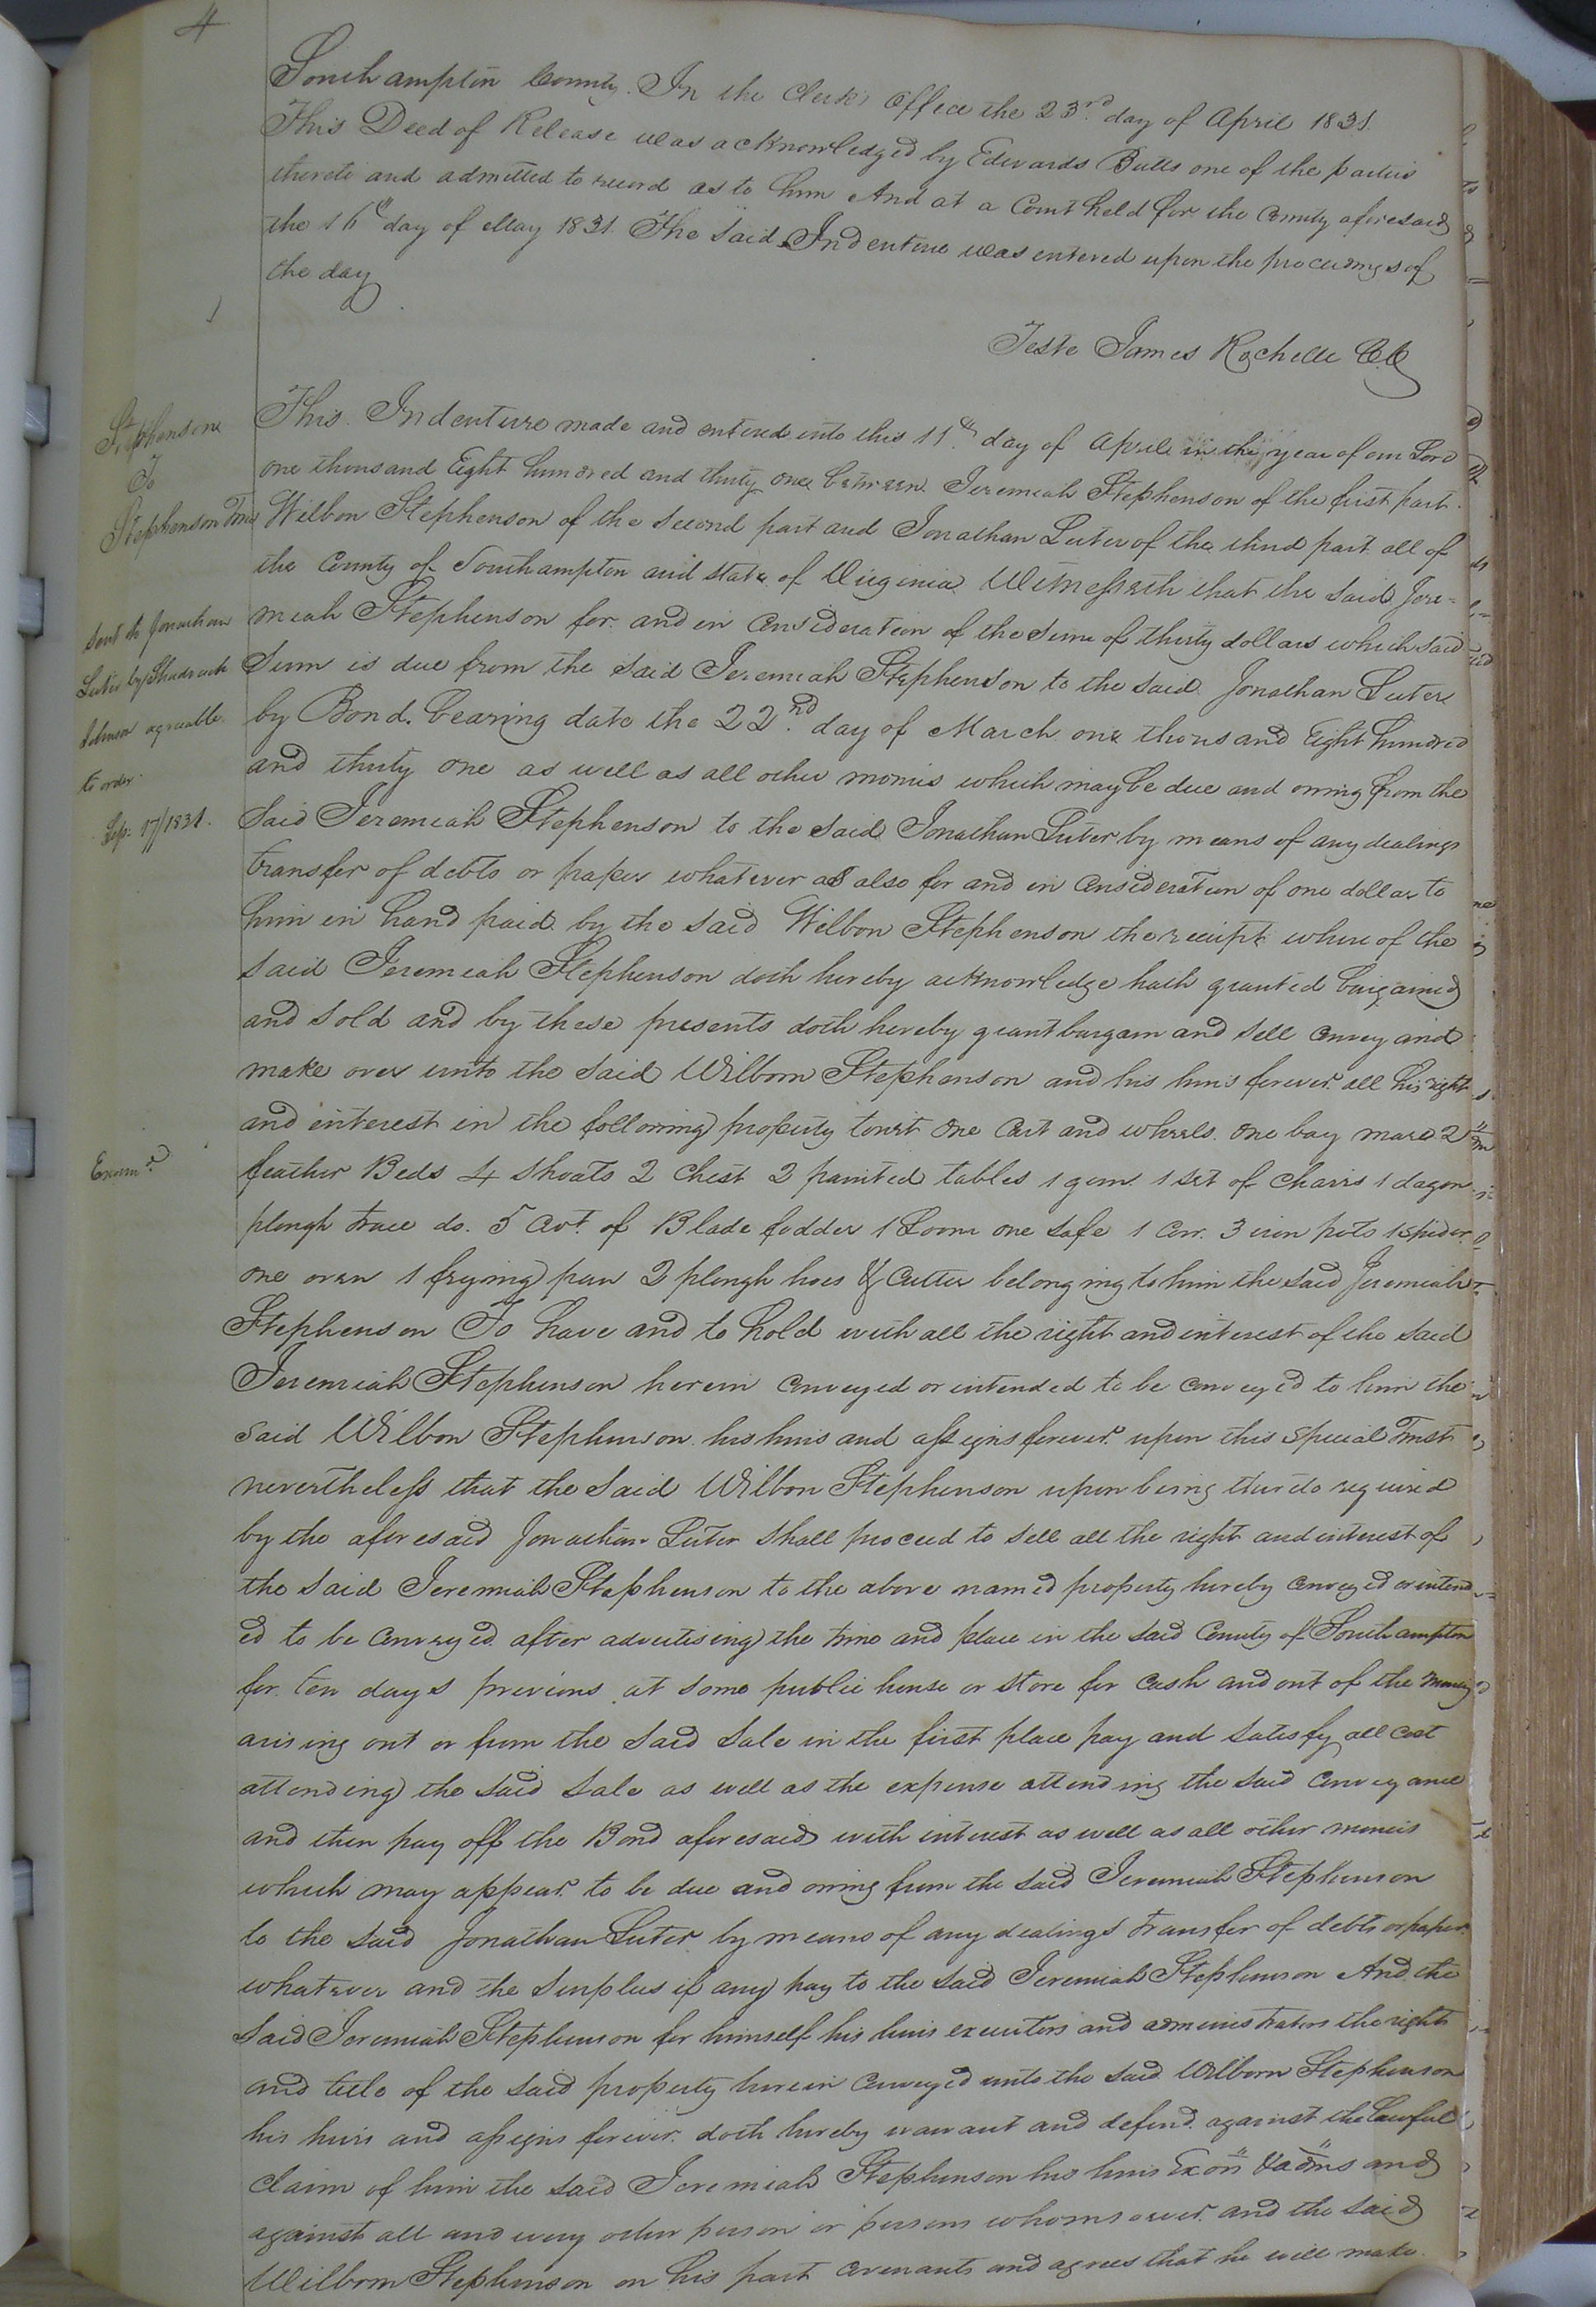 4
Southampton County. In the Clerk's Office the 23rd. day of April 1831.
This Deed of Release was acknowledged by Edwards Butts one of the parties
thereto and admitted to record as to him And at a Court held for the County aforesaid
the 16th day of May 1831. The said Indenture was entered upon the proceedings of
the day
Teste James Rochelle C.C.
Stephenson
To
Stephenson Trus
Sent to Jonathan
Luter by Shadrach
Johnson agreeable
to order
Sep: 17/1831.
Exam.d
This Indenture made and entered into this 11th. day of April in the year of our Lord
one thousand Eight hundred and thirty one between Jeremiah Stephenson of the first part
Wilbon Stephenson of the second part and Jonathan Luter of the third part all of
the County of Southampton and state of Virginia Witnesseth that the said Jere=
miah Stephenson for and in Consideration of the sum of thirty dollars which said
Sum is due from the said Jeremiah Stephenson to the said Jonathan Luter
by Bond. bearing date the 22nd. day of March one thousand Eight hundred
and thirty one as well as all other monies which may be due and owing from the
Said Jeremiah Stephenson to the said Jonathan Luter by means of any dealings
transfer of debts or paper whatever as also for and in Consideration of one dollar to
him in hand paid by the said Wilbon Stephenson the receipt where of the
said Jeremiah Stephenson doth hereby acknowledge hath granted bargained
and sold and by these presents doth hereby grant bargain and sell convey and
make over unto the said Wilborn Stephenson and his heirs forever all his right
and interest in the following property towit One Cart and wheels. one bay mare 2
feather Beds 4 Shoats 2 Chest 2 painted tables 1 gun 1 set of Chairs 1 dagon
plough trace do. 5 Cwt. of Blade fodder 1 Loom one safe 1 Cow. 3 iron pots 1 spider
one oven 1 frying pan 2 plough hoes & Cutter belonging to him the said Jeremiah
Stephenson To have and to hold with all the right and interest of the said
Jeremiah Stephenson herein conveyed or intended to be conveyed to him the
said Wilbon Stephenson his heirs and assigns forever upon this special Trust
nevertheless that the said Wilbon Stephenson upon being thereto required
by the aforesaid Jonathan Luter shall proceed to sell all the right and interest of
the said Jeremiah Stephenson to the above named property hereby conveyed or intend
ed to be conveyed after advertising the time and place in the said County of Southampton
for ten days previous at some public house or store for cash and out of the money
arising out or from the said sale in the first place pay and satisfy all cost
attending the said sale as well as the expense attending the said conveyance
and then pay off the Bond aforesaid with interest as well as all other monies
which may appear to be due and owing from the said Jeremiah Stephenson
to the said Jonathan Luter by means of any dealings transfer of debts or paper
whatever and the surplus if any pay to the said Jeremiah Stephenson And the
said Jeremiah Stephenson for himself his heirs executors and administrators the right
and title of the said property herein conveyed unto the said Wilborn Stephenson
his heirs and assigns forever doth hereby warrant and defend against the lawful
claim of him the said Jeremiah Stephenson his heirs Exors &adms and
against all and every other person or persons whomsoever and the said
Wilborn Stephenson on his part covenants and agrees that he will make